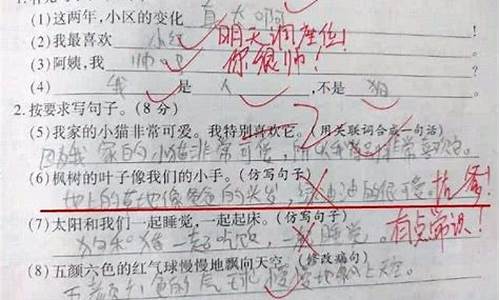 (1)这两年,小区的变化 真大啊
(2)我最喜欢 小红 明天调座位!
(3)阿姨,我 帅吧 你很帅!
(4) 我 是 人 ,不是 狗
2.按要求写句子。(8 分)
(5)我家的小猫非常可爱。我特别喜欢它。(用关联词合成一句话)
因为我家的小猫非常可爱,所以我非常喜欢它。
(6)枫树的叶子像我们的小手。(仿写句子)
地上的草地像爸爸的头发,绿油油的很可爱。找爹!
(7)太阳和我们一起睡觉,一起起床。(仿写句子)
狗和猪一起吃饭,一起睡觉。 有点常识!
(8)五颜六色的红气球慢慢地飘向天空。(修改病句)
五颜六色的气球慢慢地飘上天空。